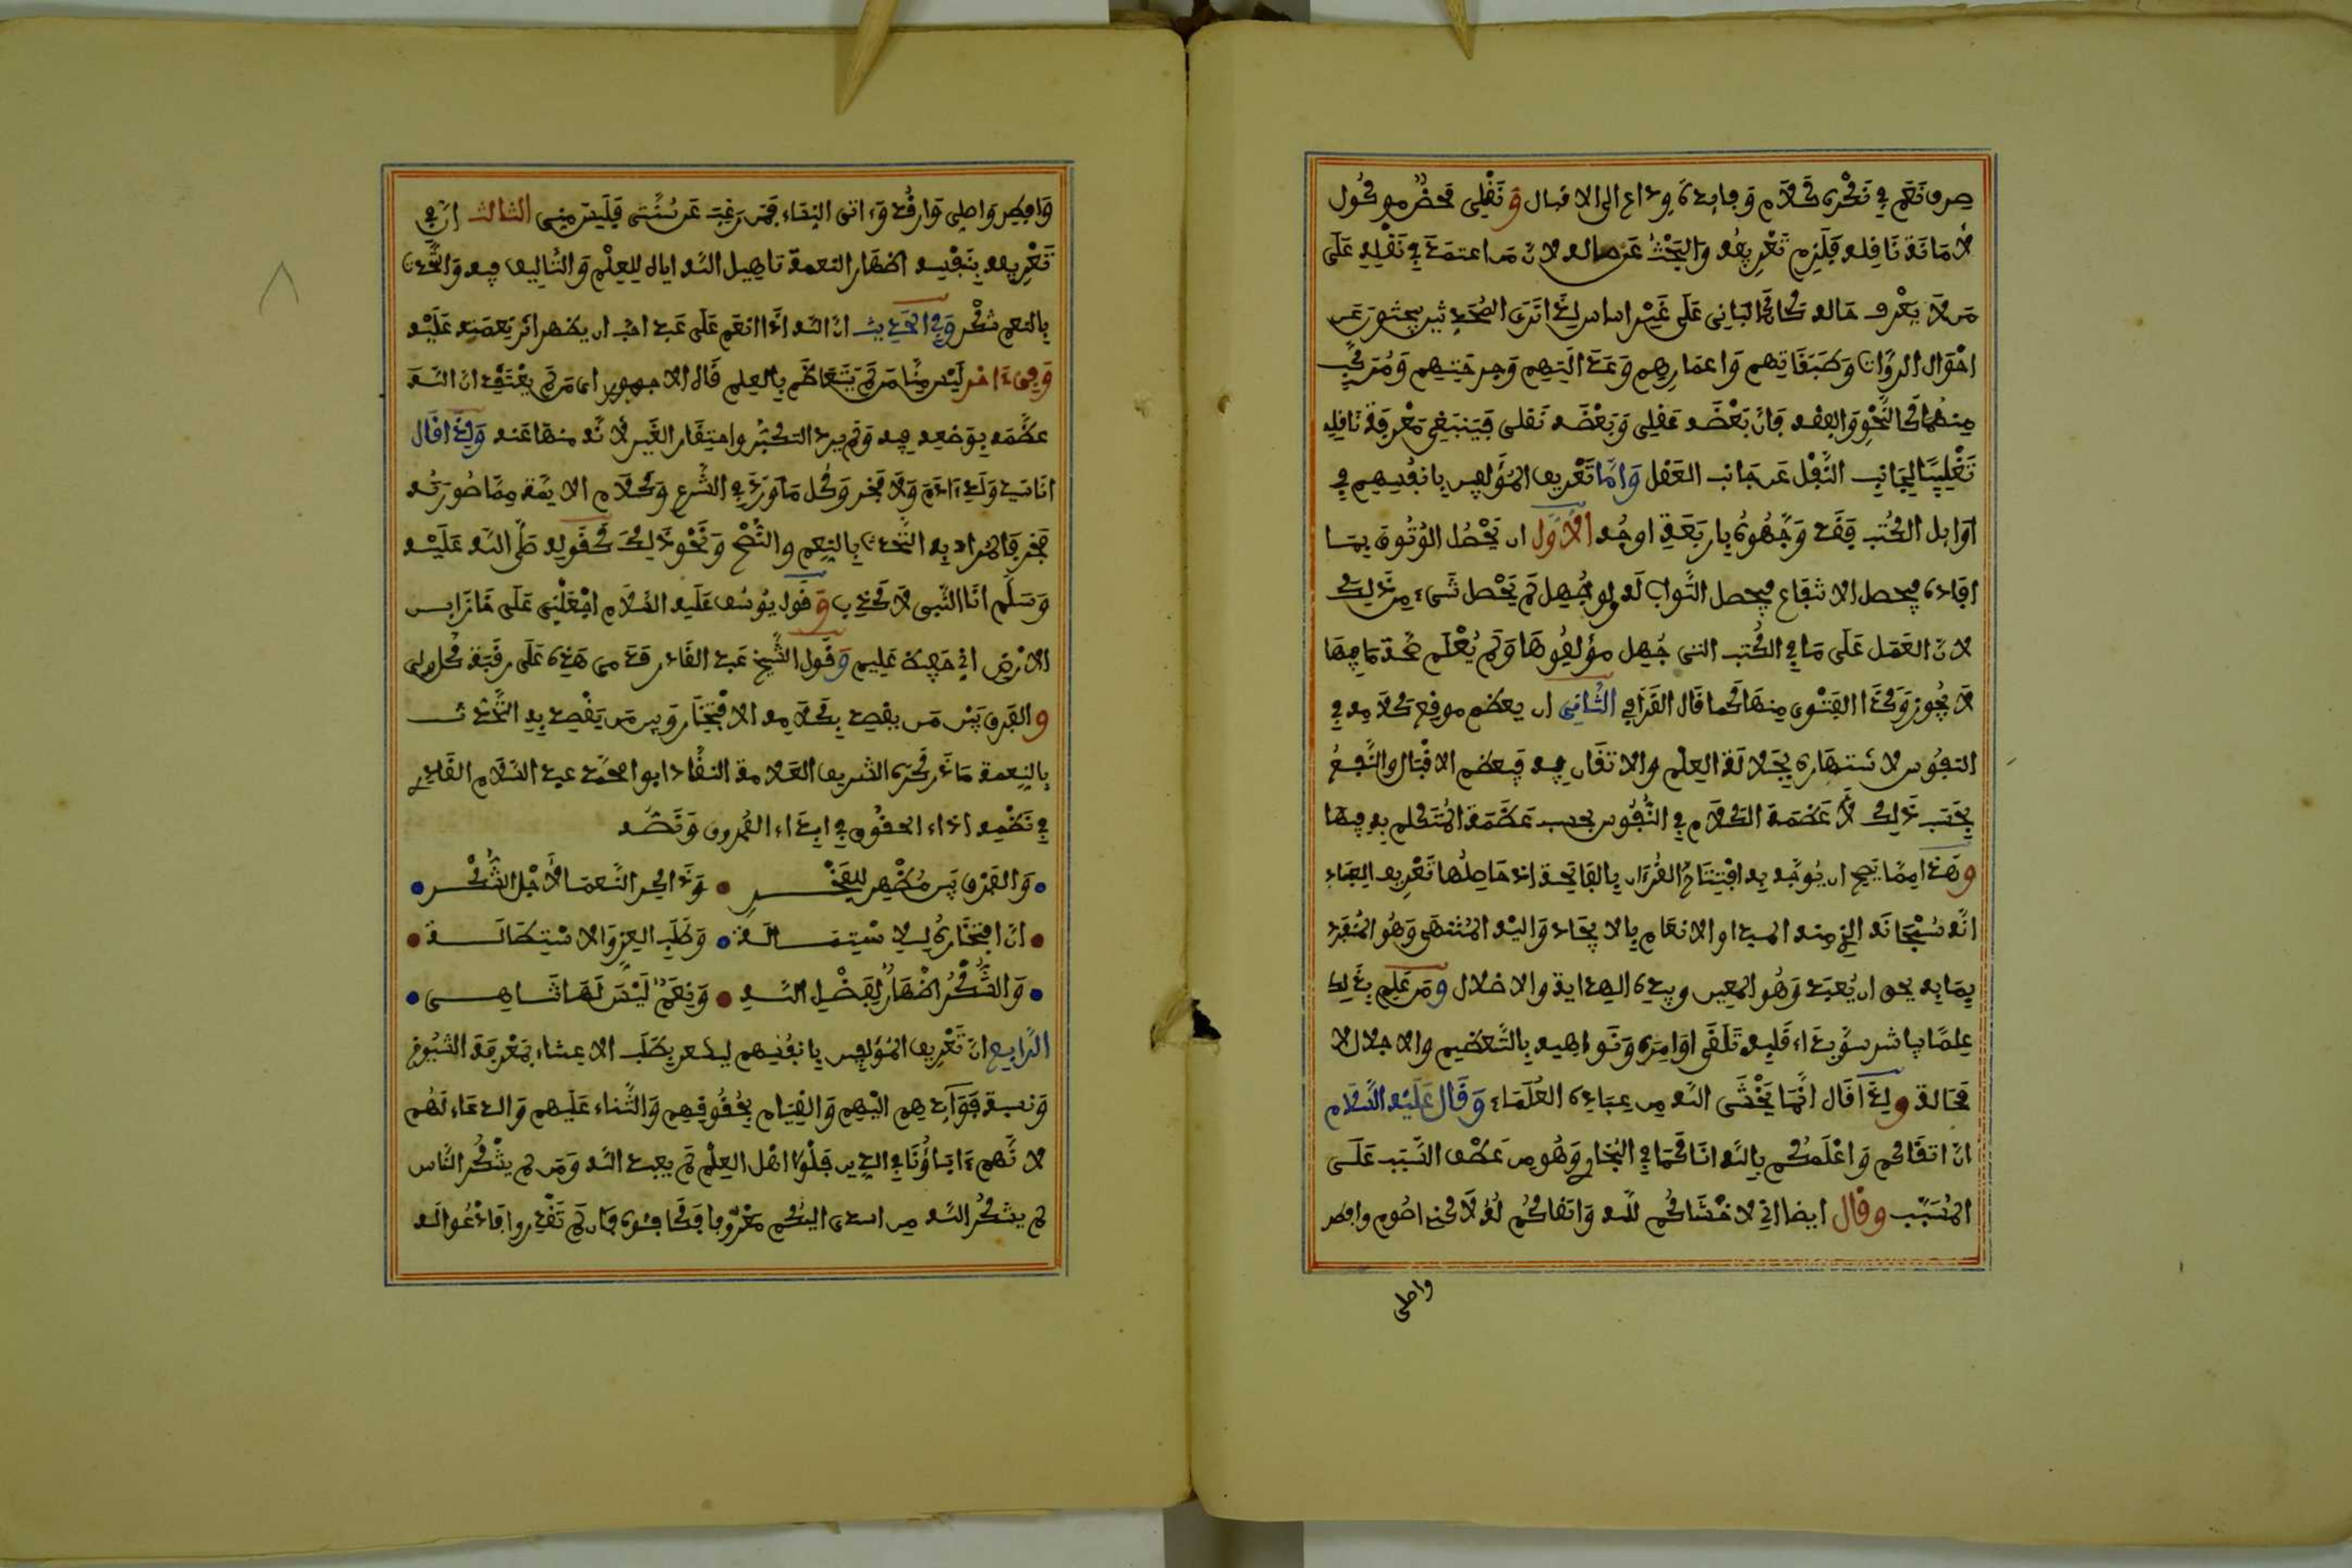 صرف نعم في نحرى كلام وفايدة وداع الى الاقبال ونقلى محض موكول
لأمانة ناقله فلزم تعريفه والبحث عن حاله لان من اعتمد في نقله على
من لا يعرف حاله كان كالبانى على غير اساس لذا ترى المحدثين يبحثون عن
احوال الرواة وطبقاتهم واعمارهم وعدالتهم وجرحتهم ومركب
منهما كالنحو والفقه فان بعضه عقلى وبعضه نقلى فينبغى معرفة ناقله
تغليبا لجانب النقل عن جانب العقل واما تعريف المؤلفين بانفسهم في
اوايل الكتب فقد وجهوه باربعة اوجه الأول ان يحصل الوثوق بما
افاده فيحصل الانتفاع فيحصل الثواب له ولو جهل لم يحصل شىء من ذلك
لان العمل على ما في الكتب التى جهل مؤلفوها ولم يعلم صحة ما فيها
لا يجوز وكذا الفتوى منها كما قال القرافي الثانى ان يعظم موقع كلامه في
النفوس لاشتهاره بجلالة العلم والاتقان فيه فيعظم الاقبال والنفع
بحسب ذلك لأن عظمة الكلام في النفوس بحسب عظمة المتكلم به فيها
وهذا مما يصح ان يوجه به افتتاح القرءان بالفاتحة اذ حاصلها تعريف العباد
انه سبحانه الذي منه المبدا والانعام بالايجاد واليه المنتهى وهو المنفرد
بما به يحق ان يعبد وهو المعين وبيده الهداية والاضلال ومن علم بذلك
علما باشر سويداء قلبه تلقى اوامره ونواهيه بالتعظيم والاجلال لا
محالة ولذا قال انما يخشى الله من عباده العلماء وقال عليه السلام
ان اتقاكم واعلمكم بالله انا كما في البخاري وهو من عطف السبب على
المسبب وقال ايضا اني لاخشاكم لله واتقاكم له لاكني اصوم وافطر
واصلى
وافطر واصلى وارقد وءاتى النساء فمن رغب عن سنتى فليس منى الثالث ان في
تعريفه بنفسه اظهار النعمة تاهيل الله اياه للعلم والتاليف فيه والتحدث
بالنعم شكر وفي الحديث ان الله اذا انعم على عبد احب ان يظهر اثر نعمته عليه
وفي ءاخر ليس منا من لم يتعاظم بالعلم قال الاجهورى اى من لم يعتقد ان الله
عظمه بوضعه فيه ولم يرد التكبر واحتقار الغير لأنه منها عنه ولذا قال
انا سيد ولد ءادم ولا فخر وكل ما ورد في الشرع وكلام الايمة مما صورته
فخر فالمراد به التحدث بالنعم والنصح ونحو ذلك كقوله صلى الله عليه
وسلم انا النبى لا كذب وقول يوسف عليه السلام اجعلنى على خزاين
الارض اني حفيظ عليم وقول الشيخ عبد القادر قدمى هذه على رقبة كل ولى
والفرق بين من يقصد بكلامه الافتخار وبين من يقصد به التحدث
بالنعمة ما ذكره الشريف العلامة النقاد ابو محمد عبد السلام القادري
في نظمه اداء الحقوق في ابداء الفروق ونصه
والفرق بين مظهر للفخر وذاكر النعما لأجل الشكر
ان افتخاره لاستمالة وطلب العز والاستطالة
والشكر اظهار لفضل الله ونعم ليس لها تناهى
الرابع ان تعريف المؤلفين بانفسهم ليشعر بطلب الاعتناء بمعرفة الشيوخ
ونسبة فوايدهم اليهم والقيام بحقوقهم والثناء عليهم والدعاء لهم
لانهم ءاباؤنا في الدين فلولا اهل العلم لم يعبد الله ومن لم يشكر الناس
لم يشكر الله من اسدى اليكم معروفا فكافئوه فان لم تقدروا فادعوا له